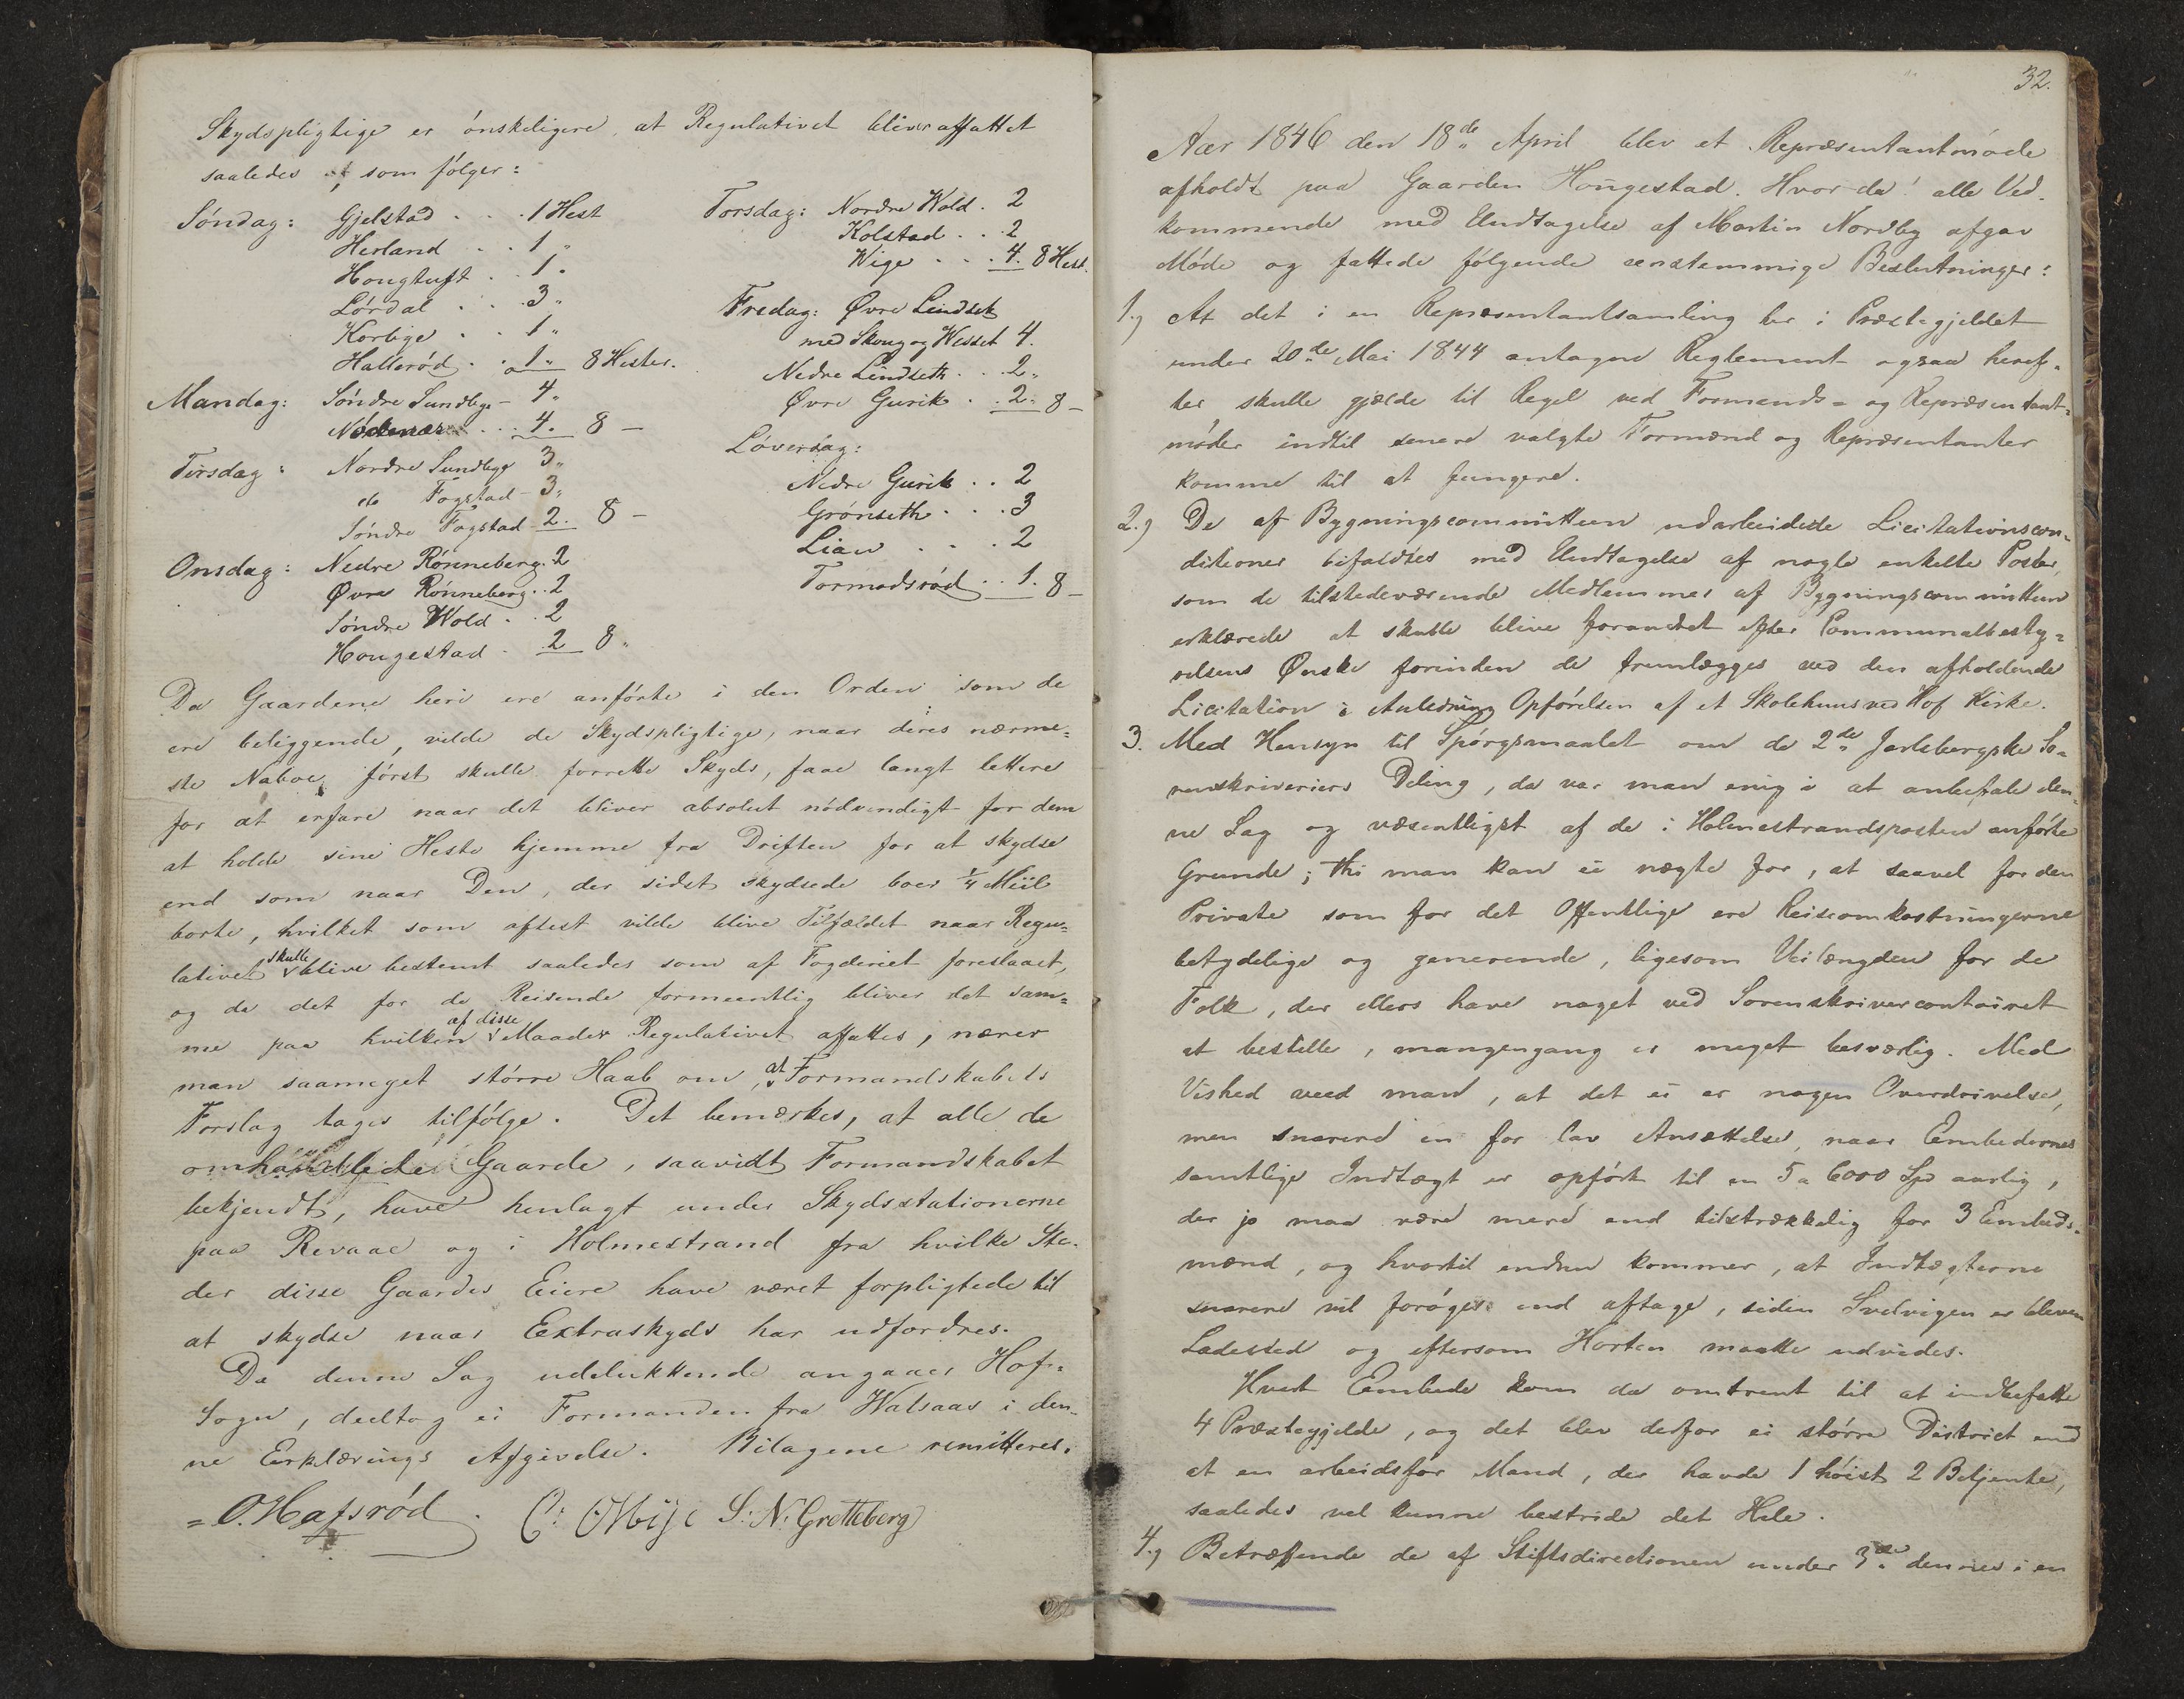 Skydspligtige er ønskeligere, at Regulativet bliver affattet
saaledes som følger:
Søndag: Gjelstad . . . 1 Hest
Herland . . 1 "
Hougtuft . . 1 "
Lørdal . . . 3 "
Korbige . . 1 "
Hallerød . . 1 " 8 Hester.
Mandag: Søndre Sundbye - 4 "
. . . 4. 8 —
Tirsdag: Nordre Sundbye 3 "
do Fogstad - 3 "
Søndre Fogstad - 2. 8 —
Onsdag: Nedre Rønneberg. 2
Øvre Rønneberg. . 2
Søndre Wold . . 2
Hougestad . 2 8 "
Torsdag: Nordre Wold . 2
Kolstad . . 2
Wige . . . 4. 8 Hest.
Fredag: Øvre Lindset
med Skoug og Wesset 4.
Nedre Lindseth . . 2 "
Øvre Gurik . . 2. 8 —
Løverdag:
Nedre Gurik . . 2
Grønseth . . . 3
Lian . . . 2
Tormodsrød . . 1. 8 —
Da Gaardene heri ere anførte i den Orden som de
ere beliggende, vilde de Skydspligtige, naar deres nærme=
ste Naboe først skulle forrette Skyds, faae langt lettere
for at erfare naar det bliver absolut nødvendigt for dem
at holde sine Heste hjemme fra Driften for at skydse
end som naar Den, der sidst skydsede boer 1/4 Miil
borte, hvilket som oftest vilde blive Tilfældet naar Regu=
lativet skulle blive bestemt saaledes som af Fogderiet foreslaaet,
og da det for de Reisende formeentlig bliver det sam=
me paa hvilken af disse Maader Regulativet affattes, nærer
man saameget større Haab om, at Formandskabets
Forslag tages tilfølge. Det bemærkes, at alle de
omhandlede Gaarde, saavidt Formandskabet
bekjendt, have henlagt under Skydsstationerne
paa Revaae og i Holmestrand fra hvilke Ste=
der disse Gaardes Eiere have været forpligtede til
at skydse naar Extraskyds har udfordres.
Da denne Sag udelukkende angaaer Hof=
Sogn, deeltog ei Formanden fra Walsaas i den=
ne Erklærings Afgivelse. Bilagene remitteres.
O. Hafsrød. S: N: Gretteberg
32.
Aar 1846 den 18de April blev et Repræsentantmøde
afholdt paa Gaarden Hougestad. Hvor da alle Ved=
kommende med Undtagelse af Martin Nordby afgav
Møde og fattede følgende eenstemmige Beslutninger:
1.) At det i en Repræsentantsamling her i Præstegjeldet
under 20de Mai 1844 antagne Reglement ogsaa heref=
ter skulle gjælde til Regel ved Formands= og Repræsentant=
møder indtil senere valgte Formænd og Repræsentanter
komme til at fungere.
2.) De af Bygningscommitteen udarbeidede Licitationscon=
ditioner bifaldtes med Undtagelse af nogle enkelte Poster,
som de tilstedeværende Medlemmer af Bygningscommitteen
erklærede at skulle blive forandret efter Communalbesty=
relsens Ønske forinden de fremlægges ved den afholdende
Licitation i Anledning Opførelsen af et Skolehuus ved Hof Kirke.
3. Med Hensyn til Spørgsmaalet om de 2de Jarlsbergske So=
renskriveriers Deling, da var man enig i at anbefale den=
ne Sag og væsentligst af de i Holmestrandsposten anførte
Grunde; thi man kan ei nægte for, at saavel for den
Private som for det Offentlige ere Reiseomkostningerne
betydelige og generende, ligesom Veilængden for de
Folk, der ellers have noget ved Sorenskrivercontoiret
at bestille, mangengang er meget besværlig. Med
Vished veed man, at det ei er nogen Overdrivelse,
men snarere en for lav Ansættelse, naar Embedernes
samtlige Indtægt er opført til en 5 a 6000 Spd aarlig,
der jo maa være mere end tilstrækkelig for 3 Embeds=
mænd, og hvortil endnu kommer, at Indtægterne
snarere vil forøges end aftage, siden Svelvigen er bleven
Ladested og eftersom Horten maatte udvides.
Hvert Embede kom da omtrent til at indbefatte
4 Præstegjelde, og det blev derfor ei større District end
at en arbeidsfør Mand, der havde 1 høist 2 Betjente,
saaledes vel kunne bestride det Hele.
4.) Betræffende de af Stiftsdirectionen under 3de dennes i en